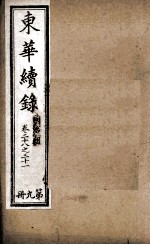 東華續錄
卷二十八之三十一
第九冊